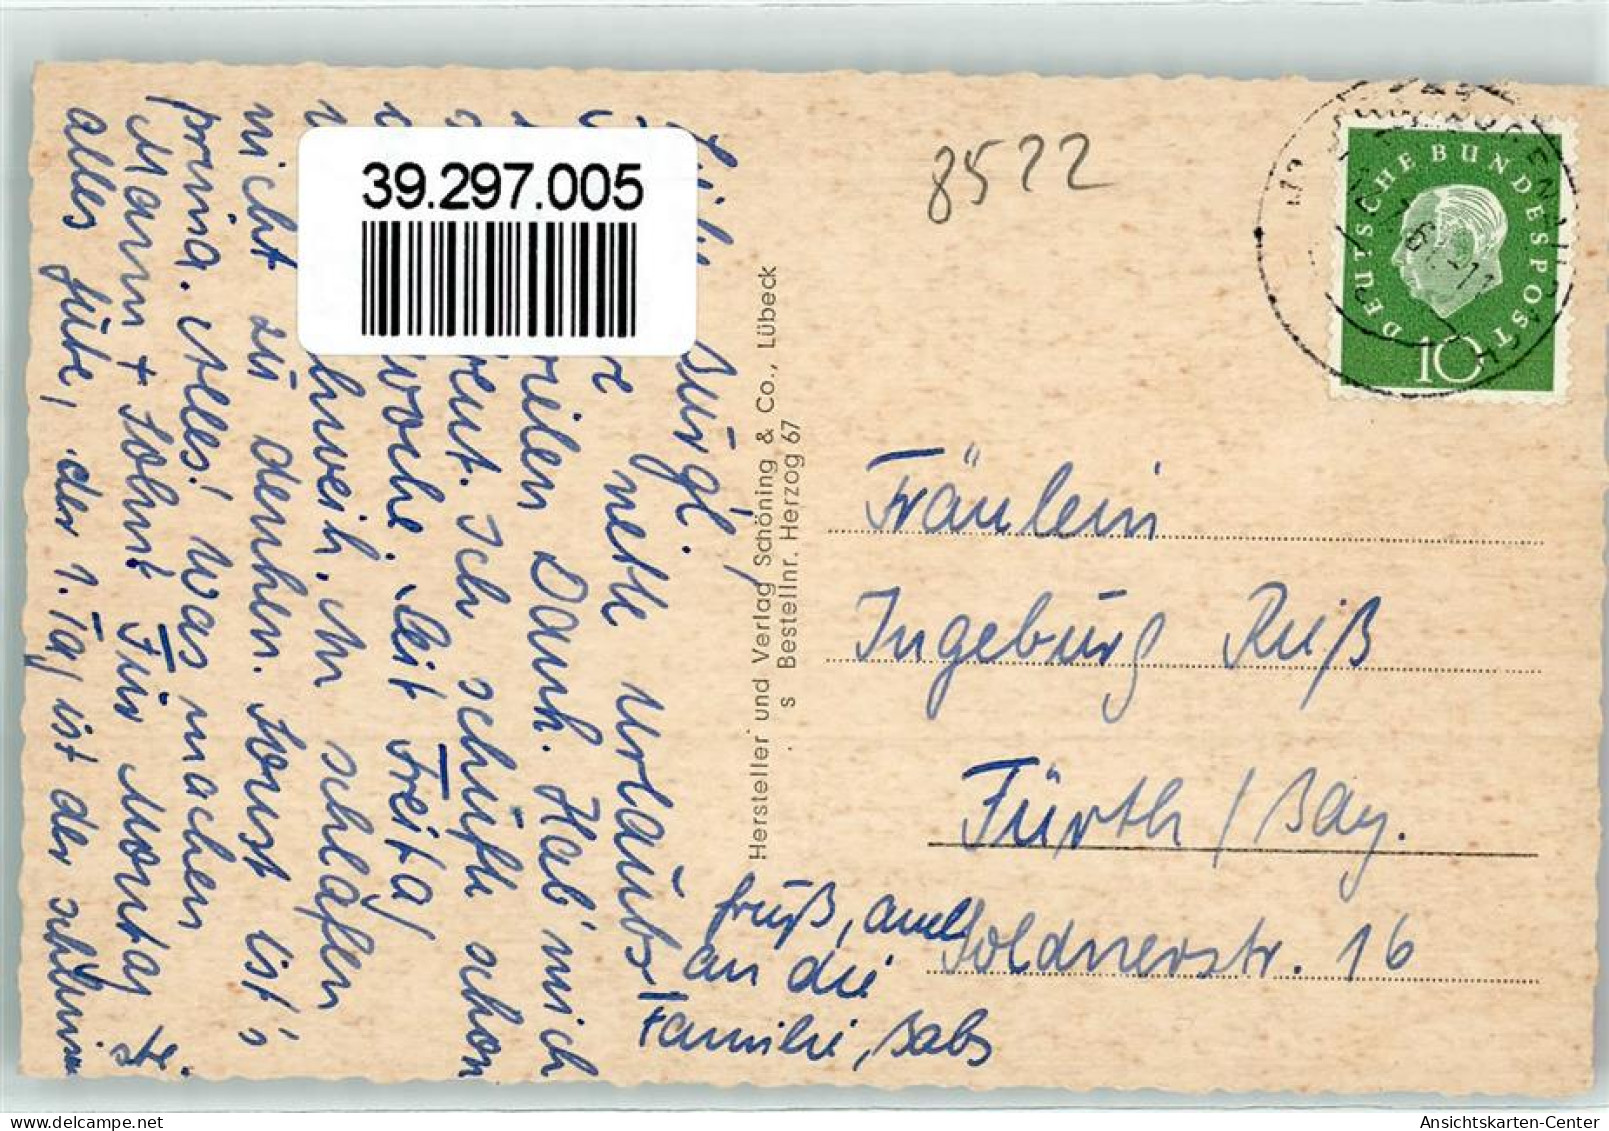 39.297.005
8522
DEUTSCHE BUNDESPOST
10
Liebe Burgl,
nette Urlaubs-
Dank. Hab' mich
Ich schufte schon
Woche. Seit Freitag
schlafen
nicht zu denken. Sonst ist's
prima. Alles! Was machen
Mann + Sohn? Für Montag
alles Gute, der 1. Tag ist der schlimmste
Gruß, auch
an die
Familie, Babs
Hersteller und Verlag Schöning & Co., Lübeck
s Bestellnr. Herzog 67
Fräulein
Ingeburg Ruß
Fürth / Bay.
Soldnerstr. 16
Ansichtskarten-Center